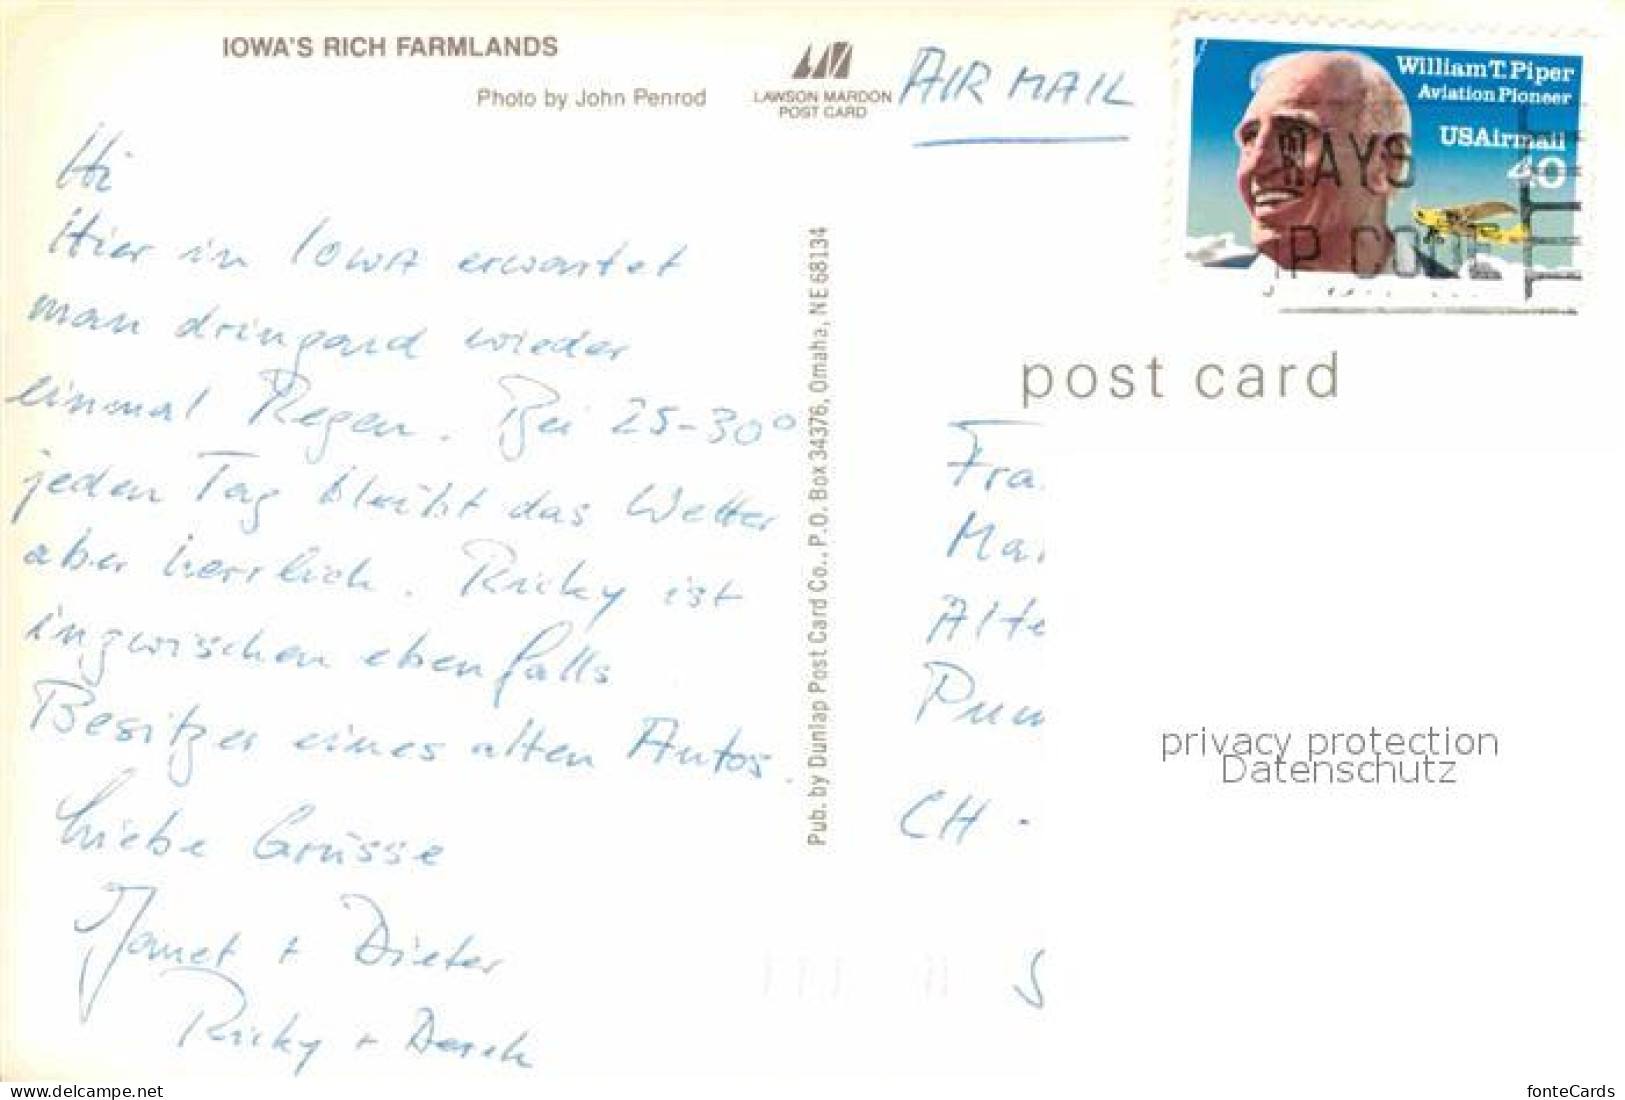 IOWA'S RICH FARMLANDS
Photo by John Penrod
LAWSON MARDON
POST CARD
AIR MAIL
William T. Piper
Aviation Pioneer
USAirmail
40
WAYS
IP CODE
Hi
Hier in Iowa erwartet
man dringend wieder
einmal Regen. Bei 25-30°
jeden Tag bleibt das Wetter
aber herrlich. Ricky ist
inzwischen ebenfalls
Besitzer eines alten Autos.
Liebe Grüsse
Janet + Dieter
Ricky + Derek
Pub. by Dunlap Post Card Co., P.O. Box 34376, Omaha, NE 68134
post card
Fra.
Mar
Alte
Pum
CH -
S
privacy protection
Datenschutz
www.delcampe.net
fonteCards